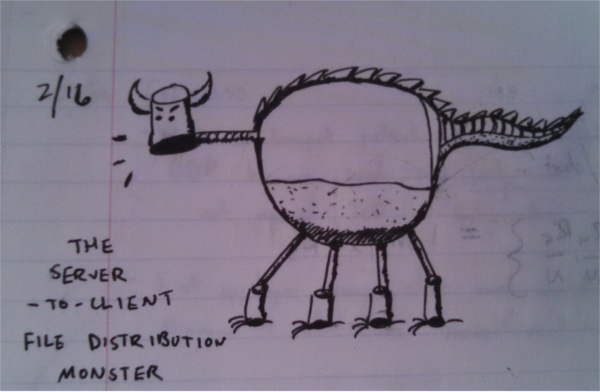 2/16
THE
SERVER
-TO-CLIENT
FILE DISTRIBUTION
MONSTER